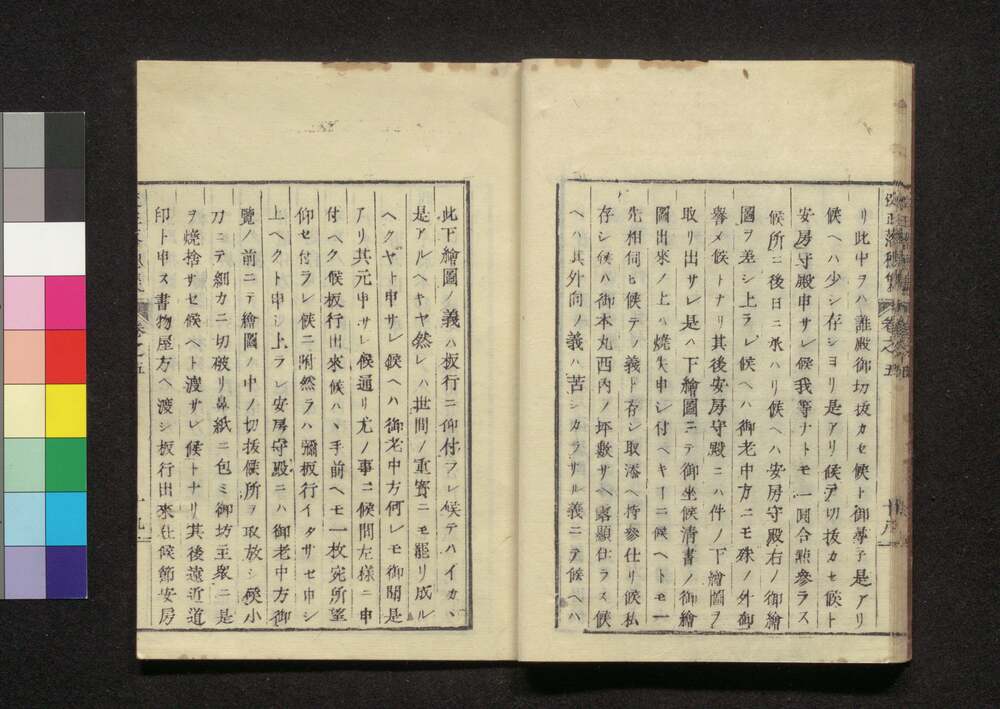 リ此中ヲハ誰殿御切抜カセ候ト御尋子是アリ
候ヘハ少シ存シヨリ是アリ候テ切抜カセ候ト
安房守殿申サレ候我等ナトモ一圓合點參ラス
候所ニ後日ニ承ハリ候ヘハ安房守殿右ノ御繪
圖ヲ差シ上ラレ候ヘハ御老中方ニモ殊ノ外御
譽メ候トナリ其後安房守殿ニハ件ノ下繪圖ヲ
取リ出サレ是ハ下繪圖ニテ御坐候清書ノ御繪
圖出來ノ上ハ燒失申シ付ヘキヿニ候ヘトモ一
先相伺ヒ候テノ義ト存シ取添ヘ持參仕リ候私
存シ候ハ御本丸西丸ノ坪數サヘ露顯仕ラス候
ヘハ其外向ノ義ハ苦シカラサル義ニテ候ヘハ
卷之五
此下繪圖ノ義ハ板行ニ仰付ラレ候テハイカヽ
是アルヘキヤ然レハ世間ノ重寳ニモ罷リ成ル
ヘクヤト申サレ候ヘハ御老中方何レモ御聞是
アリ其元申サレ候通リ尤ノ事ニ候間左樣ニ申
付ヘク候板行出來候ハヽ手前ヘモ一枚宛所望
仰セ付ラレ候ニ附然ラハ彌板行イタサセ申シ
上ヘクト申シ上ラレ安房守殿ニハ御老中方御
覽ノ前ニテ繪圖ノ中ノ切拔候所ヲ取放シ候小
刀ニテ細カニ切破リ鼻紙ニ包ミ御坊主衆ニ是
ヲ燒捨サセ候ヘト渡サレ候トナリ其後遠近道
印ト申ス書物屋方ヘ渡シ板行出來仕候節安房
卷之五